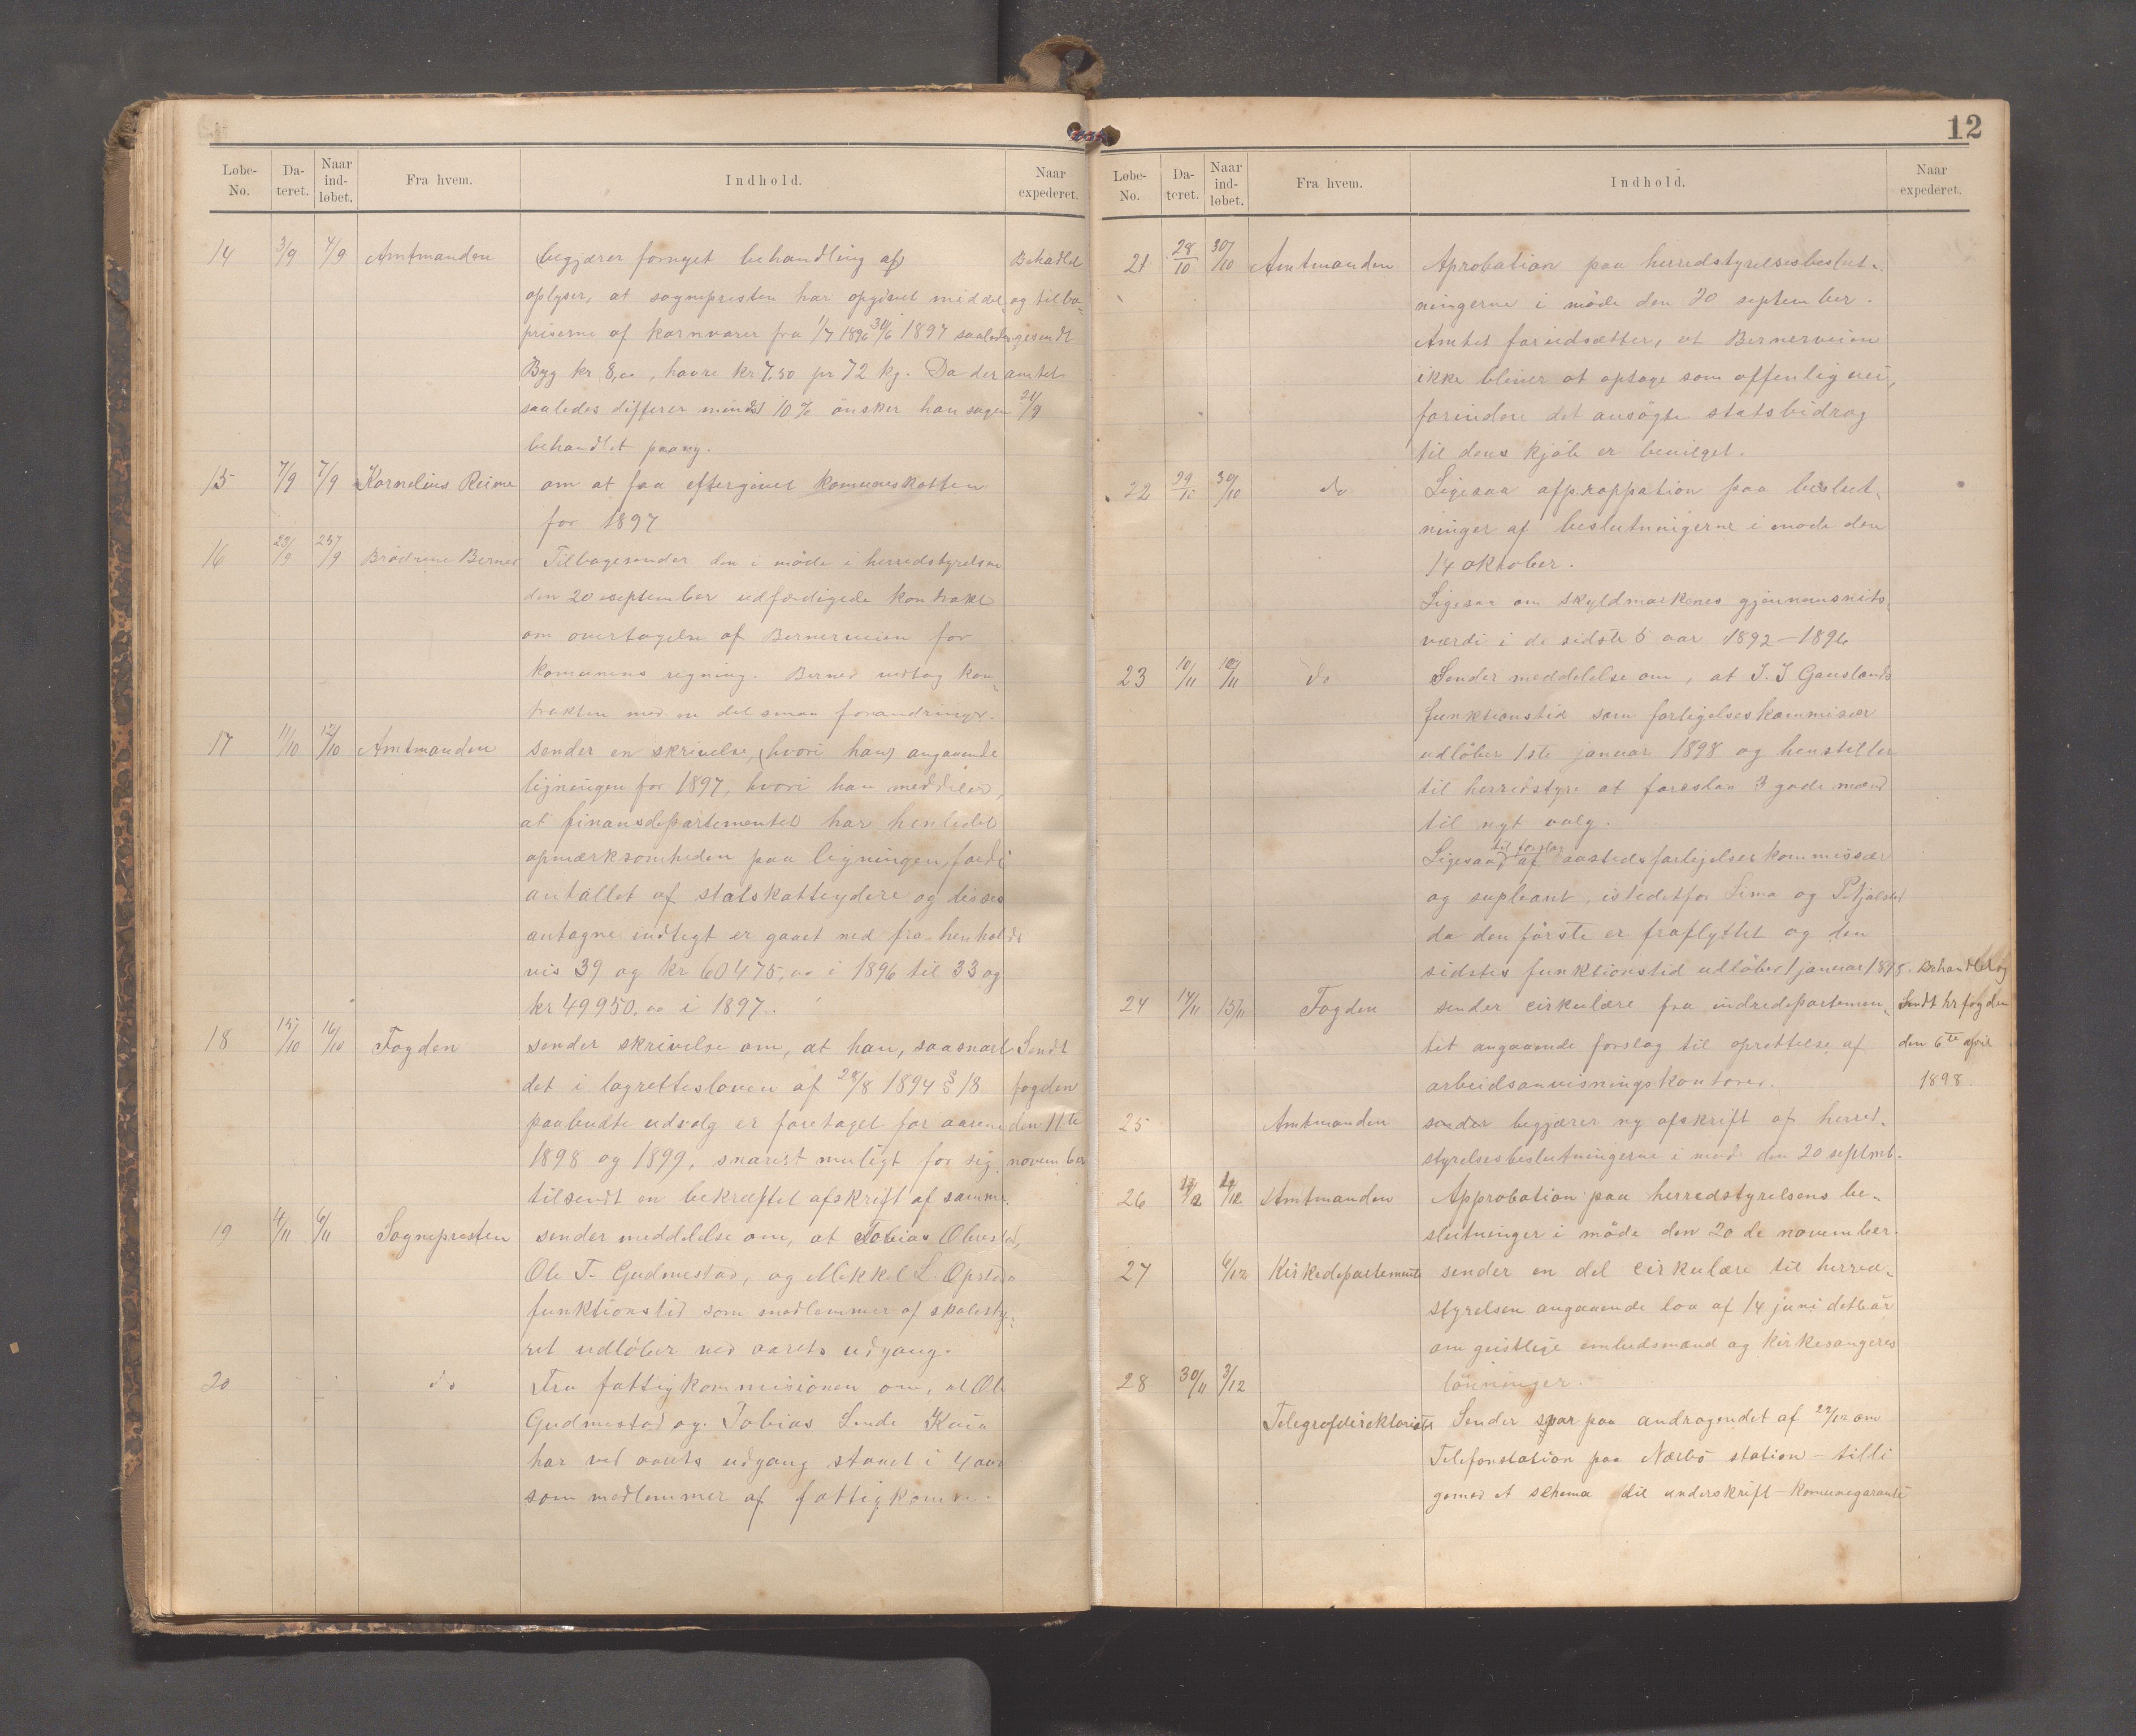 Løbe-No. Dateret. Naar indløbet. Fra hvem. Indhold. Naar expederet.
14 3/9 4/9 Amtmanden (begjærer fornyet behandling af) Behadlet
oplyser, at sognepresten har opgivet middel- og tilba-
priserne af kornvarer fra 1/7 1896 30/6 1897 saaledes gesendt
Byg kr 8,00, havre kr 7,50 pr 72 kg. Da der amtet
saaledes differer mindst 10 % ønsker han sagen 21/9
behandlet paany.
15 7/9 7/9 Kornelius Reime om at faa eftergivet komuneskatten
for 1897
16 23/9 25/9 Brødrene Berner Tilbagesender den i møde i herredstyrelsen
den 20 september udfærdigede kontrakt
om overtagelse af Bernerveien for
komunens regning. Berner vedtog kon-
trakten med en del smaa forandringer.
17 11/10 12/10 Amtmanden sender en skrivelse, (hvori han) angaaende
ligningen for 1897, hvori han meddeler,
at finansdepartementet har henledet
opmærksomheden paa ligningen, fordi
antallet af statskatteydere og disses
antagne indtegt er gaaet ned fra henholds
vis 39 og kr 60475,00 i 1896 til 33 og
kr 49950,00 i 1897.
18 15/10 16/10 Fogden sender skrivelse om, at han, saasnart Sendt
det i lagretteloven af 28/8 1894 § 18 fogden
paabudte udvalg er foretaget for aarene den 11te
1898 og 1899, snarest muligt for sig november
tilsendt en bekræftet afskrift af samme.
19 4/11 6/11 Sognepresten sender meddelelse om, at Tobias Obrestad,
Ole T. Gudmestad, og Mikkel L. Opstads
funktionstid som medlemmer af skolesty-
ret udløber ved aarets udgang.
20 do Fra fattigkommisionen om, at Ole
Gudmestad og Tobias Lende Kvia
har ved aarets udgang staaet i 4 aar
som medlemmer af fattigkomm.
12
Løbe-No. Dateret. Naar indløbet. Fra hvem. Indhold. Naar expederet.
21 28/10 30/10 Amtmanden Aprobation paa herredstyrelsesbeslut-
ningerne i møde den 20 september.
Amtet forudsætter, at Bernerveien
ikke bliver at optage som offenlig vei,
forindere det ansøgte statsbidrag
til dens kjøb er bevilget.
22 29/10 30/10 do Ligesaa approppation paa beslut-
ninger af beslutningerne i møde den
14 oktober.
Ligesaa om skyldmarkenes gjennemsnits-
værdi i de sidste 5 aar 1892–1896
23 10/11 10/11 do Sender meddelelse om, at J. J Gauslands
funktionstid som forligelseskommisær
udløber 1ste januar 1898 og henstiller
til herredstyre at foreslaa 3 gode mænd
til nyt valg.
Ligesaa til forslag af aastedsforligelseskommissær
og supleant, istedetfor Lima og
da den første er fraflyttet og den
sidstes funktionstid udløber 1 januar 1898. Behandlet og
24 14/11 15/11 Fogden sender cirkulære fra indredepartemen- Sendt hr fogden
tet angaaende forslag til oprettelse af den 6te april
arbeidsanvisningskontorer. 1898
25 Amtmanden sender begjærer ny afskrift af herred-
styrelsesbeslutningerne i mød den 20 septmb.
26 4/12 Amtmanden Approbation paa herredstyrelsens be-
slutninger i møde den 20 de november.
27 6/12 Kirkedepartemente sender en del cirkulære til herred-
styrelsen angaaende lov af 14 juni dette år
om geistlige embedsmænd og kirkesangeres
lønninger.
28 30/11 3/12
Telegrafdirektoriets Sender svar paa andragendet af 22/12 om
Telefonstation paa Nærbø station – tilli
gemed et schema til underskrift – komunegaranti